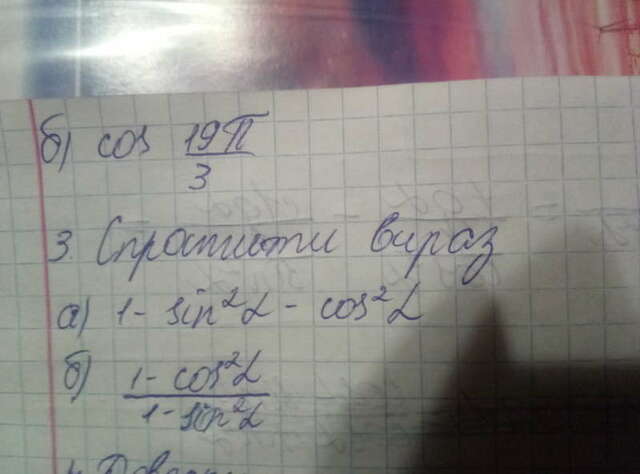 б) cos 19π/3
3. Спростити вираз
а) 1 - sin²α - cos²α
б) 1 - cos²α / 1 - sin²α